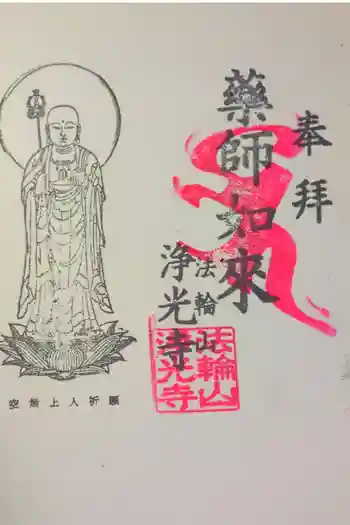 奉拝
藥師如來
法輪山
浄光寺
法輪山
浄光寺
空無上人祈願